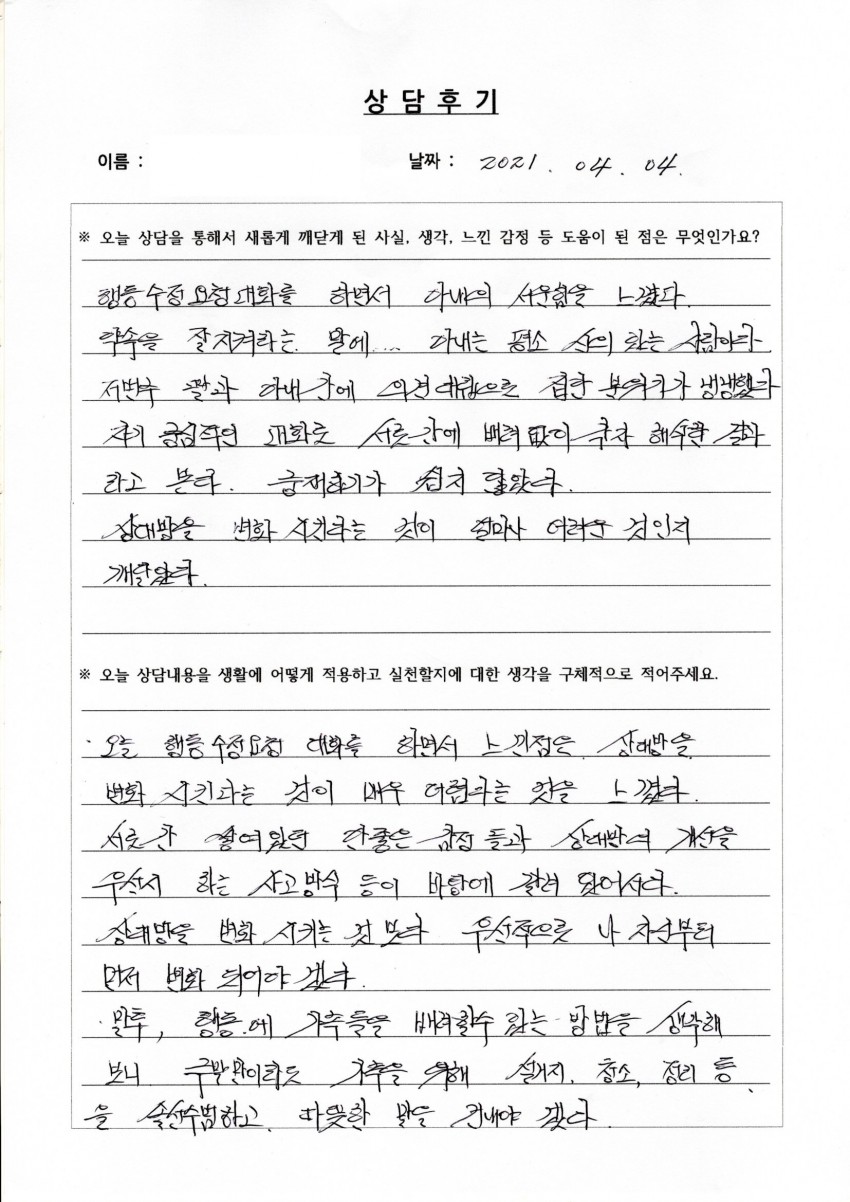 상 담 후 기
이름 : 날짜 : 2021. 04. 04.
※ 오늘 상담을 통해서 새롭게 깨닫게 된 사실, 생각, 느낀 감정 등 도움이 된 점은 무엇인가요?
행동수정요청 대화를 하면서 아내의 서운함을 느꼈다.
약속을 잘지켜라는 말에... 아내는 평소
저번주 딸과 아내 간에 의견 대립으로 집안 분위기가 냉냉했다
자기 중심적인 대화로 서로 간에 배려 없이 결과
라고 본다. 중재하기가 쉽지 않았다.
상대방을 변화 시킨다는 것이 얼마나 어려운 것인지
깨달았다.
※ 오늘 상담내용을 생활에 어떻게 적용하고 실천할지에 대한 생각을 구체적으로 적어주세요.
· 오늘 행동수정요청 대화를 하면서 느낀점은 상대방을
변화 시킨다는 것이 매우 어렵다는 것을 느꼈다.
서로 간 쌓여있던 안좋은 감정 들과 상대방의 개선을
우선시 하는 사고방식 등이 바탕에 깔려 있어서다.
상대방을 변화 시키는 것 보다 우선적으로 나 자신부터
먼저 변화 되어야 겠다.
· 말투, 행동에 가족들을 배려할수 있는 방법을 생각해
보니 주말만이라도 가족을 위해 설거지, 청소, 정리 등
을 솔선수범하고, 따뜻한 말을 건내야 겠다.